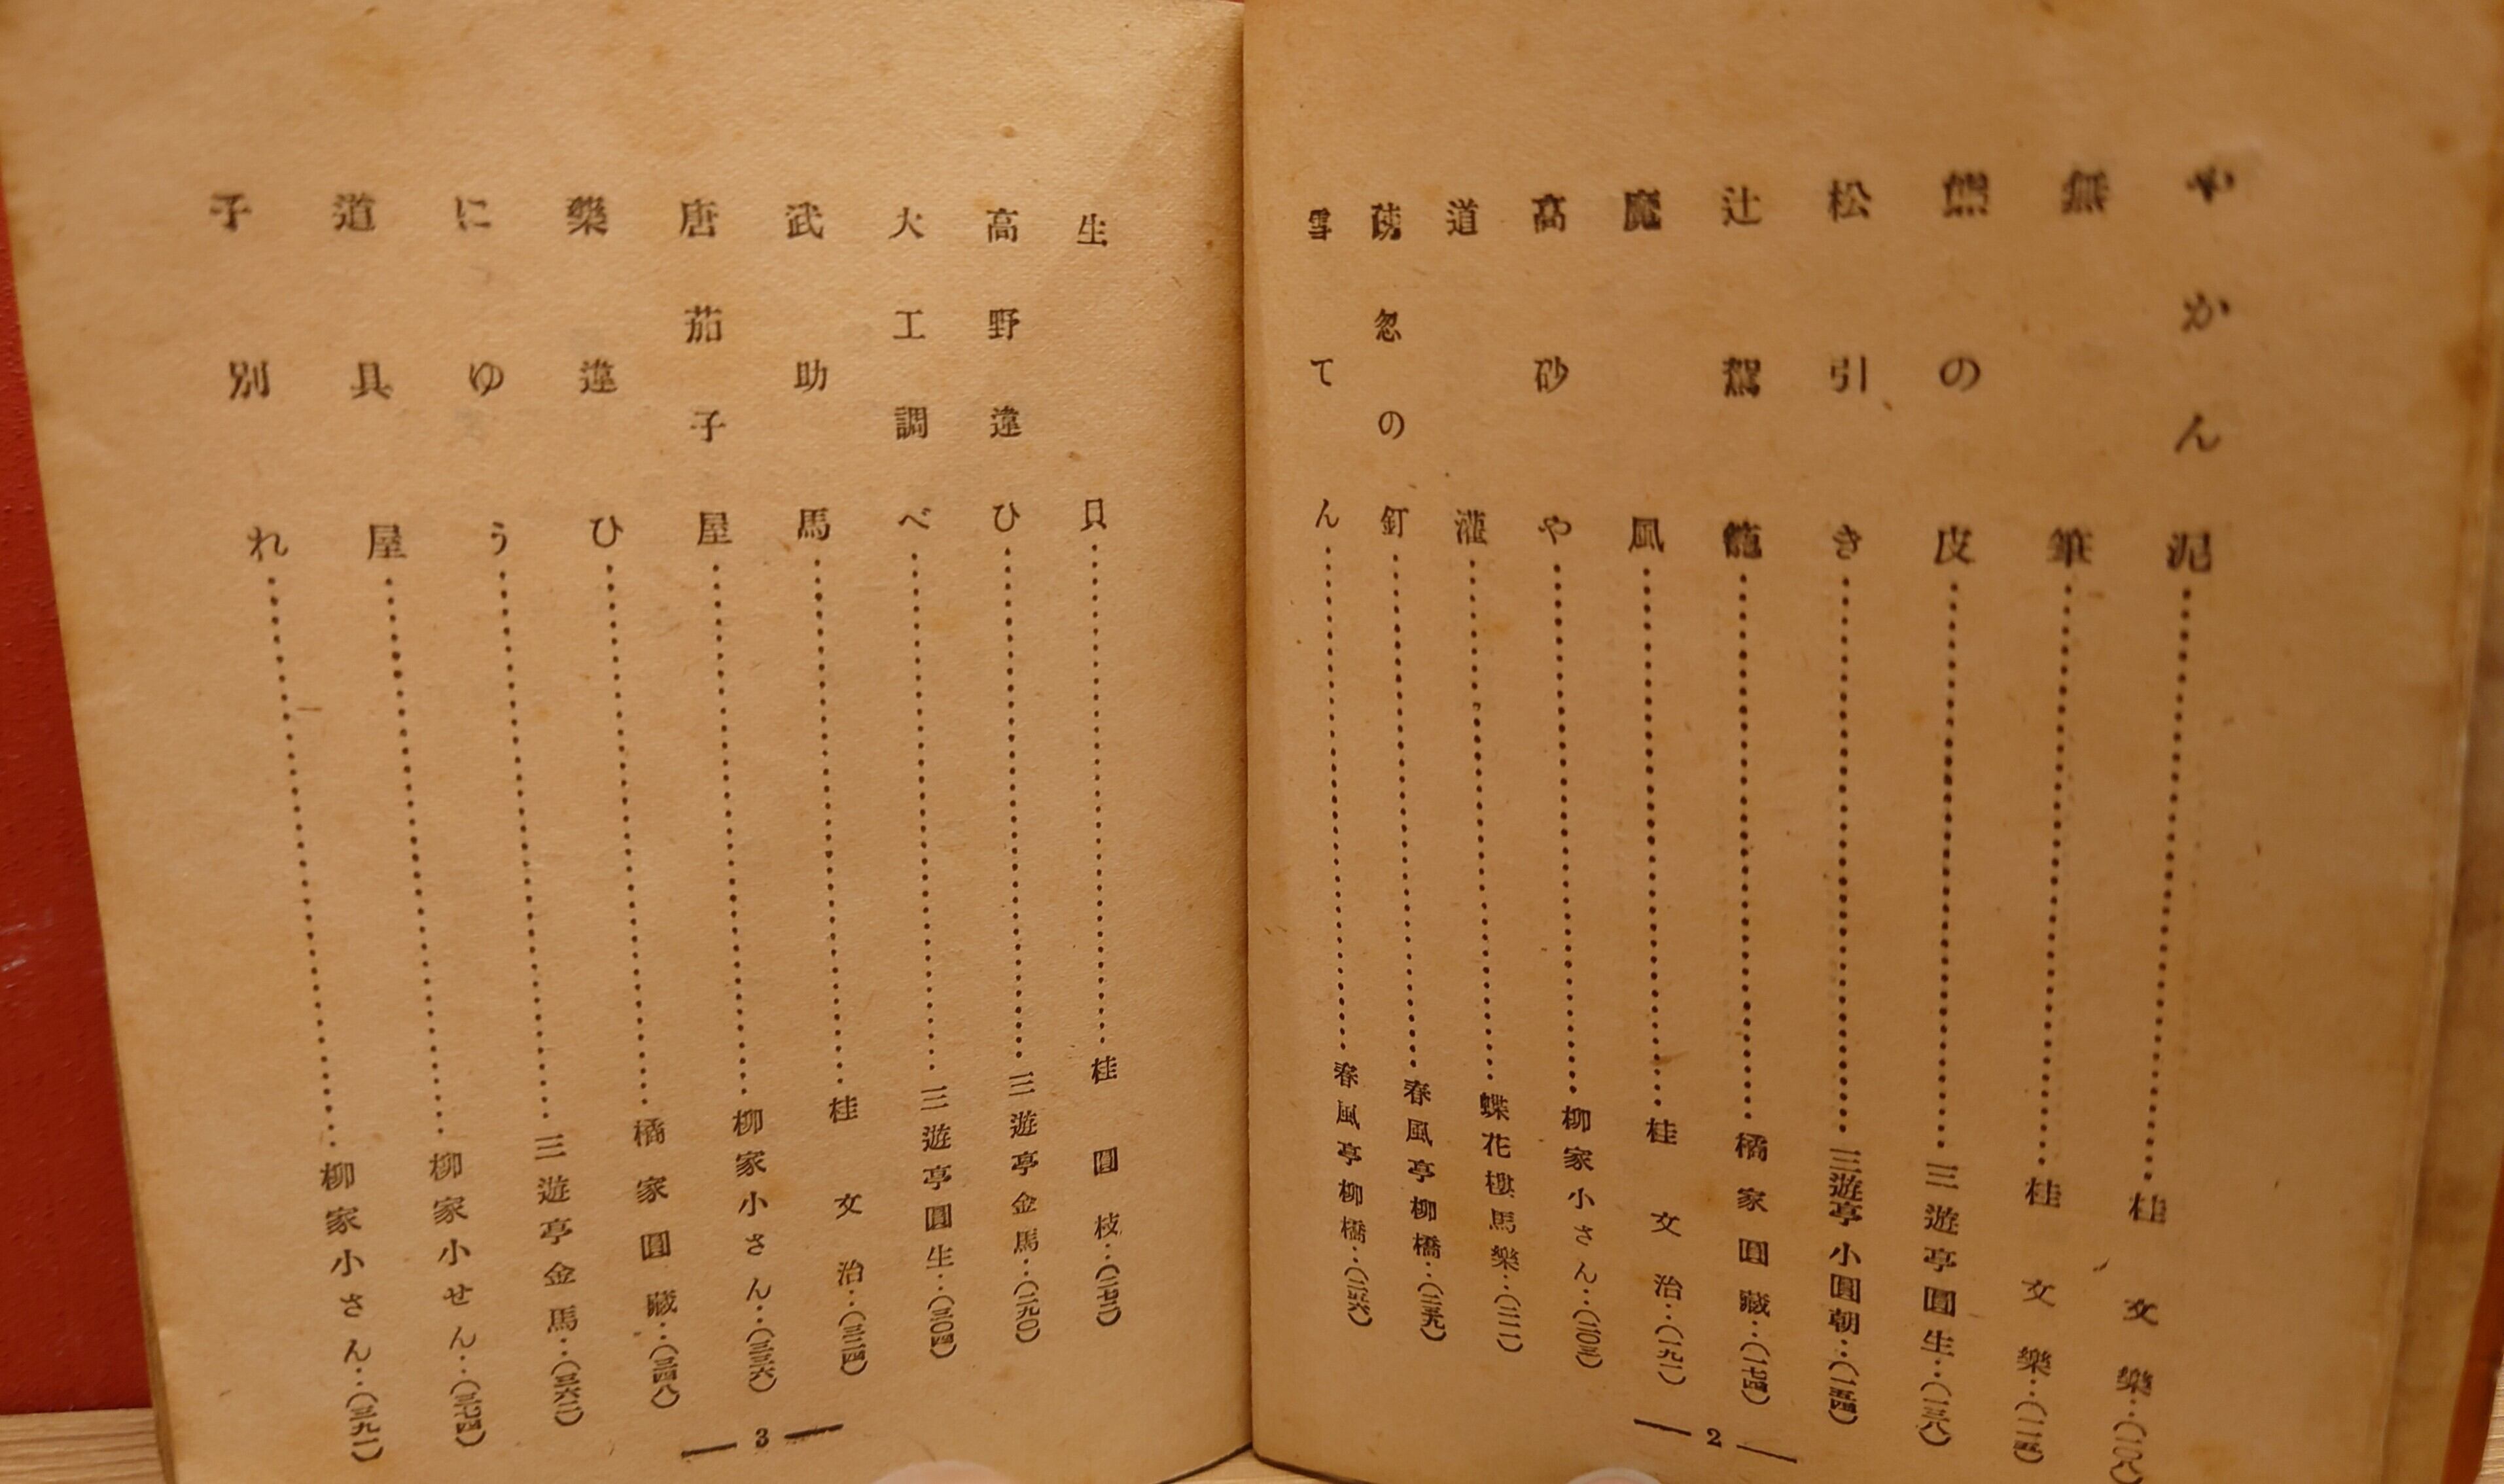 やかん泥…桂文樂…(一〇八)
無筆…桂文樂…(一二四)
熊の皮…三遊亭圓生…(一三八)
松引き…三遊亭小圓朝…(一五四)
辻駕籠…橘家圓藏…(一七四)
魔風…桂文治…(一九一)
高砂や…柳家小さん…(二〇三)
道灌…蝶花樓馬樂…(二二一)
粗忽の釘…春風亭柳橋…(二三九)
雪てん…春風亭柳橋…(二五六)
2
生貝…桂圓枝…(二七二)
高野違ひ…三遊亭金馬…(二九〇)
大工調べ…三遊亭圓生…(三〇四)
武助馬…桂文治…(三二四)
唐茄子屋…柳家小さん…(三三六)
樂違ひ…橘家圓藏…(三四八)
にゆう…三遊亭金馬…(三六二)
道具屋…柳家小せん…(三七四)
子別れ…柳家小さん…(三九一)
3